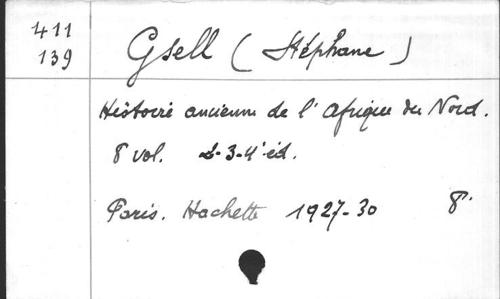 411
139
Gsell (Stéphane)
Histoire ancienne de l'Afrique du Nord.
8 vol. 2-3-4e éd.
Paris. Hachette 1927-30 8°